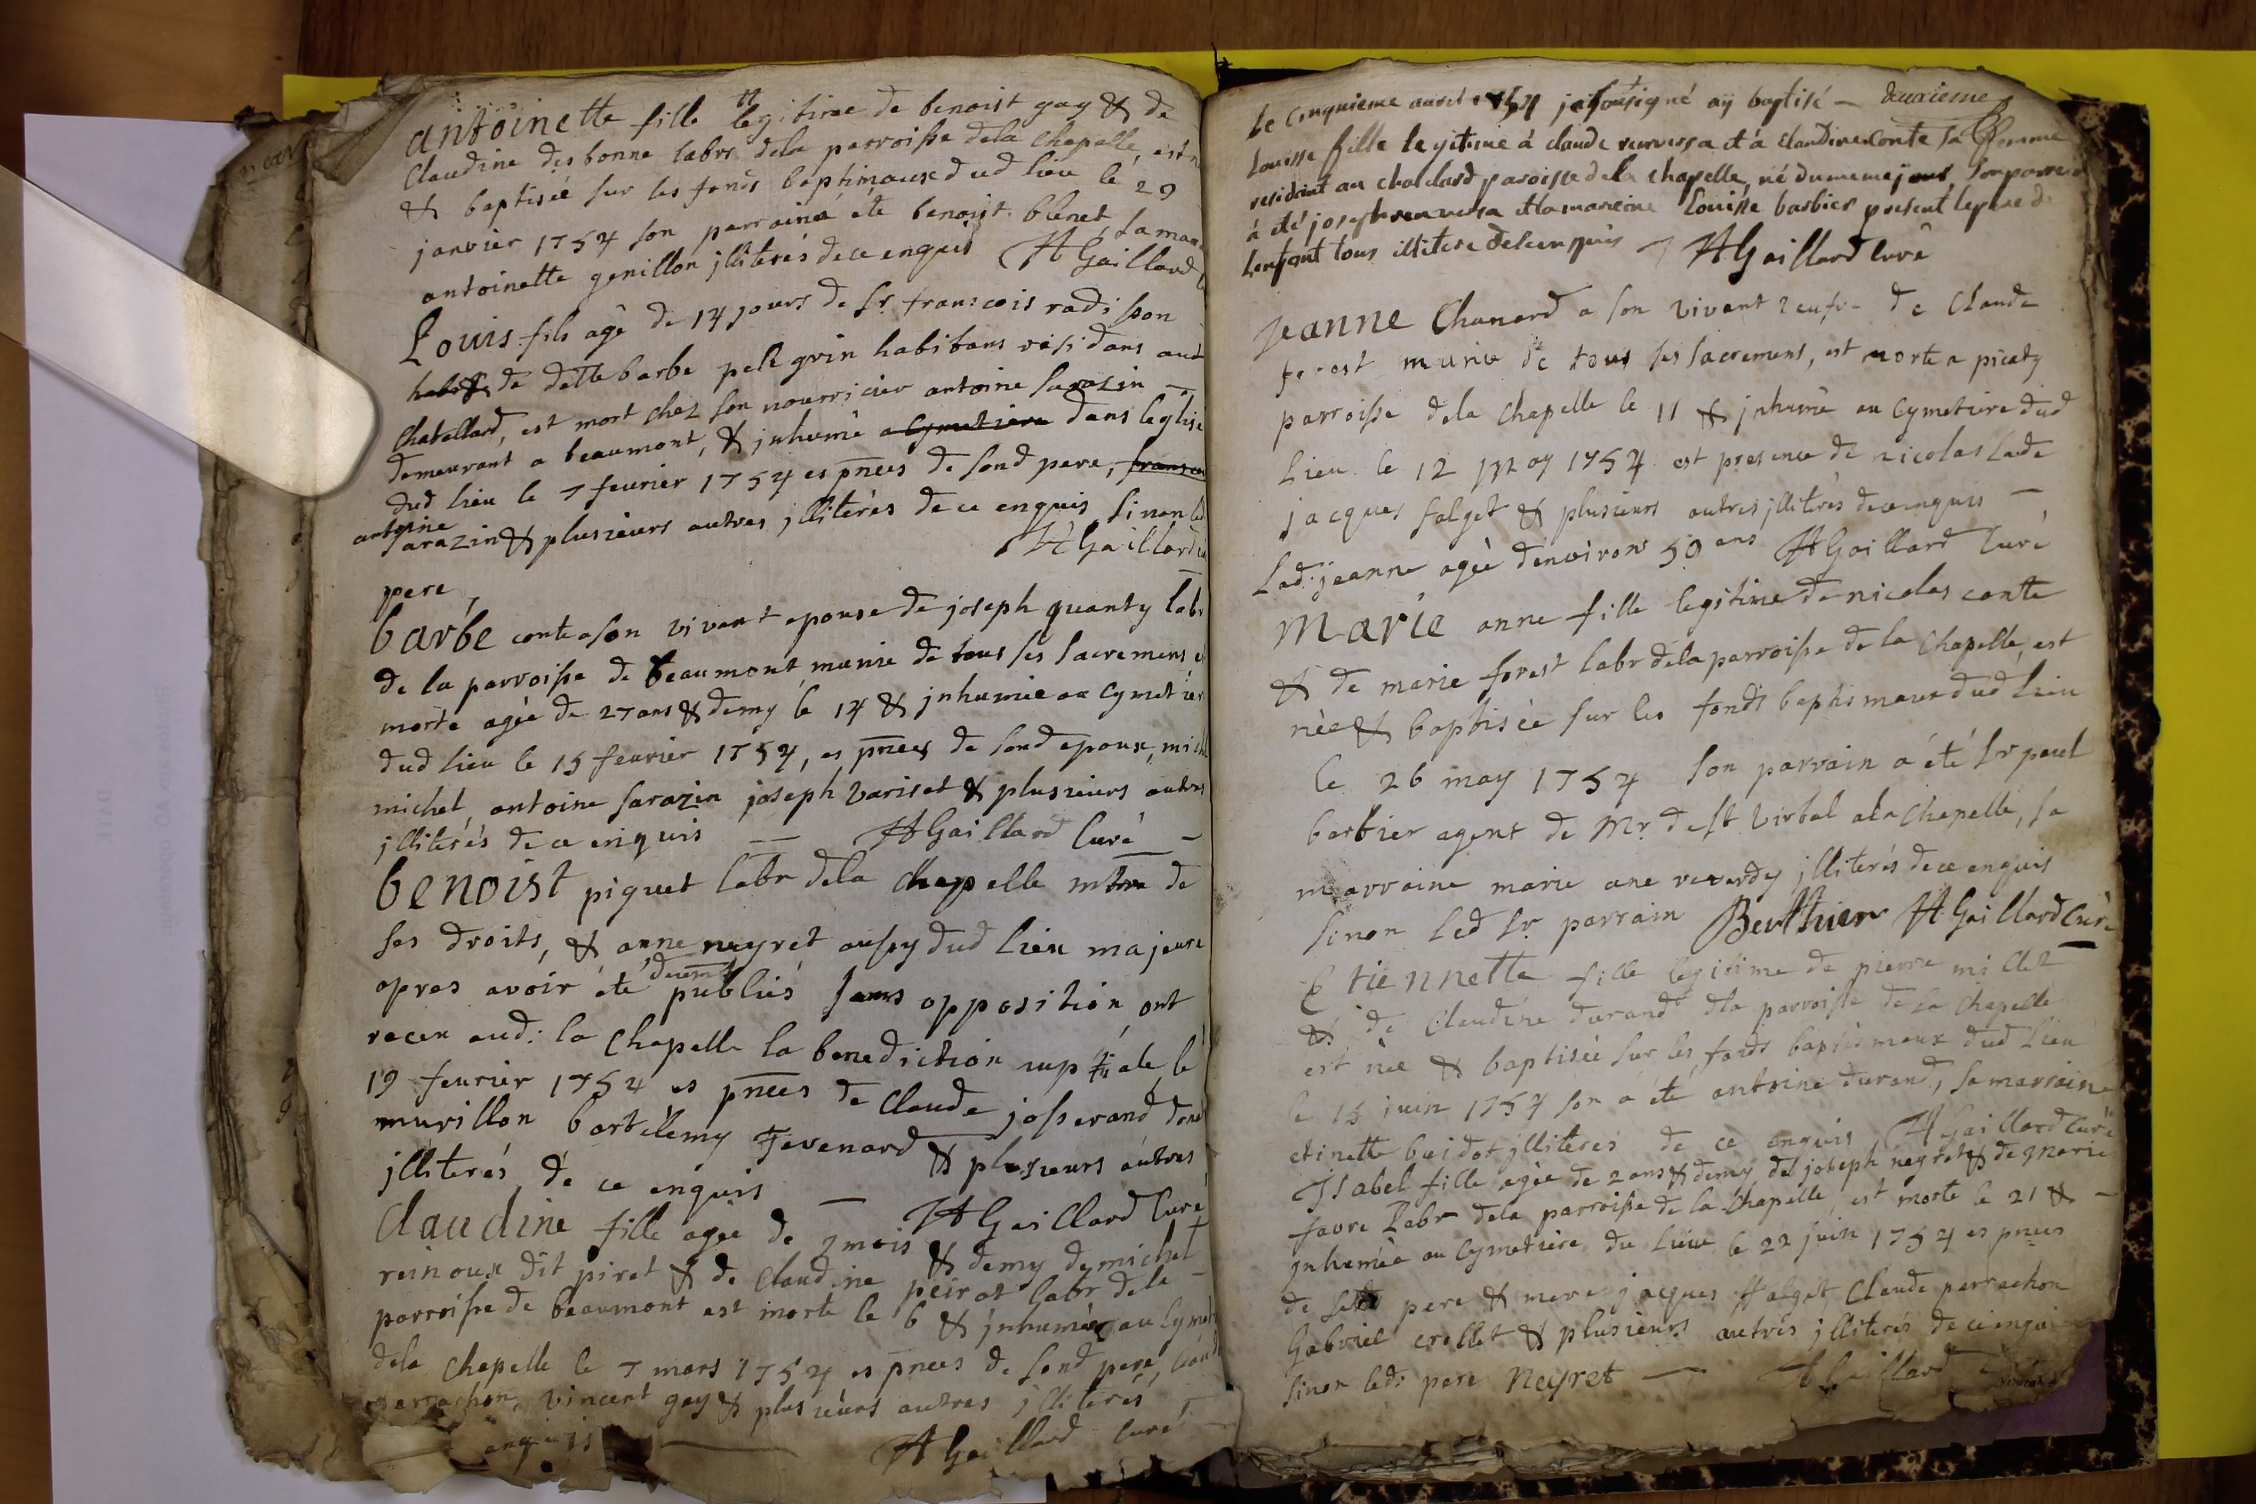 antoinette fille legitime de benoist gay & de
Claudine desbonne labrs dela parroisse dela Chapelle, est
& baptisée sur les fonds baptimaux dud lieu le 29
janvier 1754 son parrain a été benoist blenet, sa mar
antoinette genillon jlliterés de ce enquis HGaillard
Louis fils agé de 14 jours de Sr. francois radisson
& de delle barbe pelegrin habitans residans aud
Chatellard, est mort chez son nourricier antoine sarazin
demeurant a beaumont, & jnhumé a Cymetiere dans leglise
dud lieu le 7 feurier 1754 es pnces de sond pere,
antoine
sarazin & plusieurs autres jlliterés de ce enquis sinon led
HGaillard
pere,
barbe conte a son vivant epouse de joseph quanty labr
de la parroisse de beaumont munie de tous ses sacremens
morte agée de 27 ans & demy le 14 & jnhumée au Cymetier
dud lieu le 15 feurier 1754, es pnces de sond epoux,
michel, antoine sarazin joseph variset & plusieurs autres
jlliterés de ce enquis — HGaillard Curé —
benoist piquet labr dela chapelle mtre de
ses droits, & anne neyret aussy dud lieu majeure
duemt
apres avoir été publiés sans opposition ont
receu aud: la Chapelle la benediction nuptiale le
19 feurier 1754 es pnces de Claude josserand,
murillon bartélemy Tevenard & plusieurs autres
jlliterés de ce enquis — HGaillard Curé
Claudine fille agée de 2 mois & demy de michel
reinoux dit pirot & de Claudine peirot labr dela
parroisse de beaumont est morte le 6 & jnhumée au Cymet
dela Chapelle le 7 mars 1754 es pnces de sond pere,
perrachon, vincent gay & plusieurs autres jlliterés
enquis — HGaillard Curé
Le Cinquieme auril 1754 je sousigné aÿ baptisé — deuxieme
Louisse fille legitime à claude reuversa et à claudine Conte sa femme
residant au chatelard paroisse de la chapelle, né du meme jour, son parrein
à été joseph reuversa et la mareine Louisse barbier present le pere de
lenfant tous illitere de ce enquis HGaillard Curé
Jeanne Chanard a son vivant veufve de Claude
forest munie de tous ses sacremens, est morte a picaty
parroisse dela Chapelle le 11 & jnhumé au Cymetiere dud
lieu le 12 may 1754 est presence de nicolas lade
jacques falget & plusieurs autres jlliterés de ce enquis —
Lad. jeanne agée denviron 50 ans HGaillard Curé
Marie anne fille legitime de nicolas conte
& de marie forest labr dela parroisse de la Chapelle, est
née & baptisée sur les fonds baptismaux dud lieu
le 26 may 1754 son parrain a été Sr paul
barbier agent de Mr. de St Virbal ala Chapelle, sa
marraine marie ane reverdy jlliterés de ce enquis
sinon led Sr. parrain Berthier HGaillard Curé
Etiennette fille legitime de pierre millet
& de Claudine durand dla parroisse de la Chapelle
est née & baptisée sur les fonds baptismaux dud lieu
le 15 juin 1754 son a été antoine durand, sa marraine
etinette buidot jlliteres de ce enquis HGaillard Curé
Jsabel fille agée de 2 ans & demy de joseph neyret & de marie
favre labr dela parroisse de la Chapelle, est morte le 21 & —
jnhumée au Cymetiere du lieu le 22 juin 1754 es pnces
de pere & mere jacques falget, Claude perrachon
Gabriel crollet & plusieurs autres jlliterés de ce enquis
sinon ledt pere Neyret — HGaillard